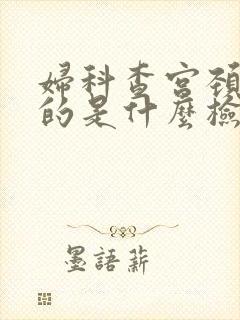 婦科查宮頸
的是什麼檢
墨語薪